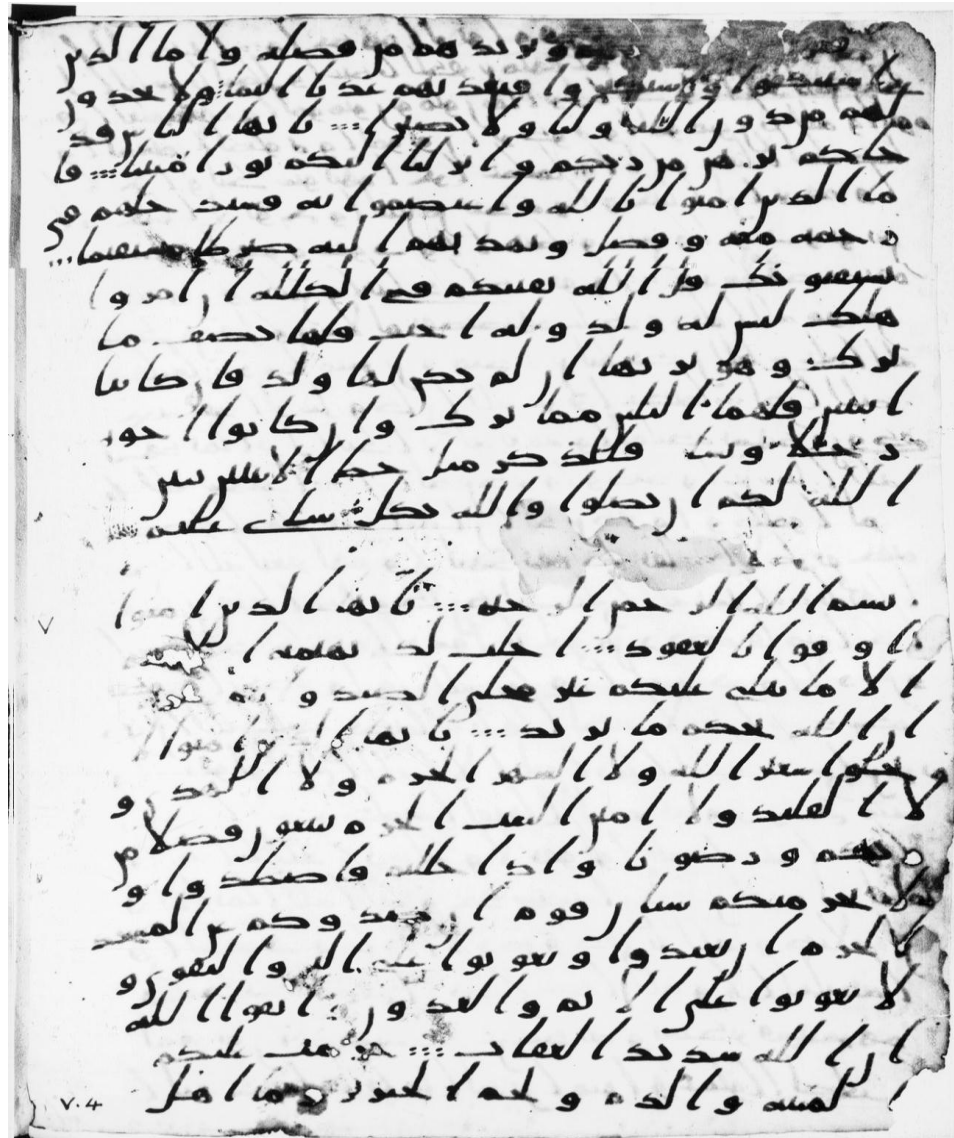 ويزيدهم من فضله واما الذين
استنكفوا واستكبروا فيعذبهم عذابا اليما ولا يجدون
لهم من دون الله وليا ولا نصيرا يايها الناس قد
جاكم برهن من ربكم وانزلنا اليكم نورا مبينا فا
ما الذين امنوا بالله واعتصموا به فسيدخلهم في
رحمة منه وفضل ويهديهم اليه صرطا مستقيما
يستفتونك قل الله يفتيكم في الكللة ان امروا
هلك ليس له ولد وله اخت فلها نصف ما
ترك وهو يرثها ان لم يكن لها ولد فان كانتا
اثنتين فلهما الثلثن مما ترك وان كانوا اخو
ة رجلا ونسا فللذكر مثل حظ الانثيين يبين
الله لكم ان تضلوا والله بكل شاي عليم
بسم الله الرحمن الرحيم يايها الذين امنوا
اوفوا بالعقود احلت لكم بهيمة
الا ما يتلى عليكم غير محلي الصيد وانتم حرم
ان الله يحكم ما يريد يايها الذين امنوا
لا تحلوا شعر الله ولا الشهر الحرم ولا الهدي و
لا القليد ولا امين البيت الحرم يبتغون فضلا من
ربهم ورضونا واذا حللتم فاصطدوا و
لا يجرمنكم شنان قوم ان صدوكم عن المسجد
الحرم ان تعتدوا وتعونوا على البر والتقوى و
لا تعونوا على الاثم والعدون واتقوا الله
ان الله شديد العقاب حرمت عليكم
الميتة والدم ولحم الخنزير وما اهل
v.4